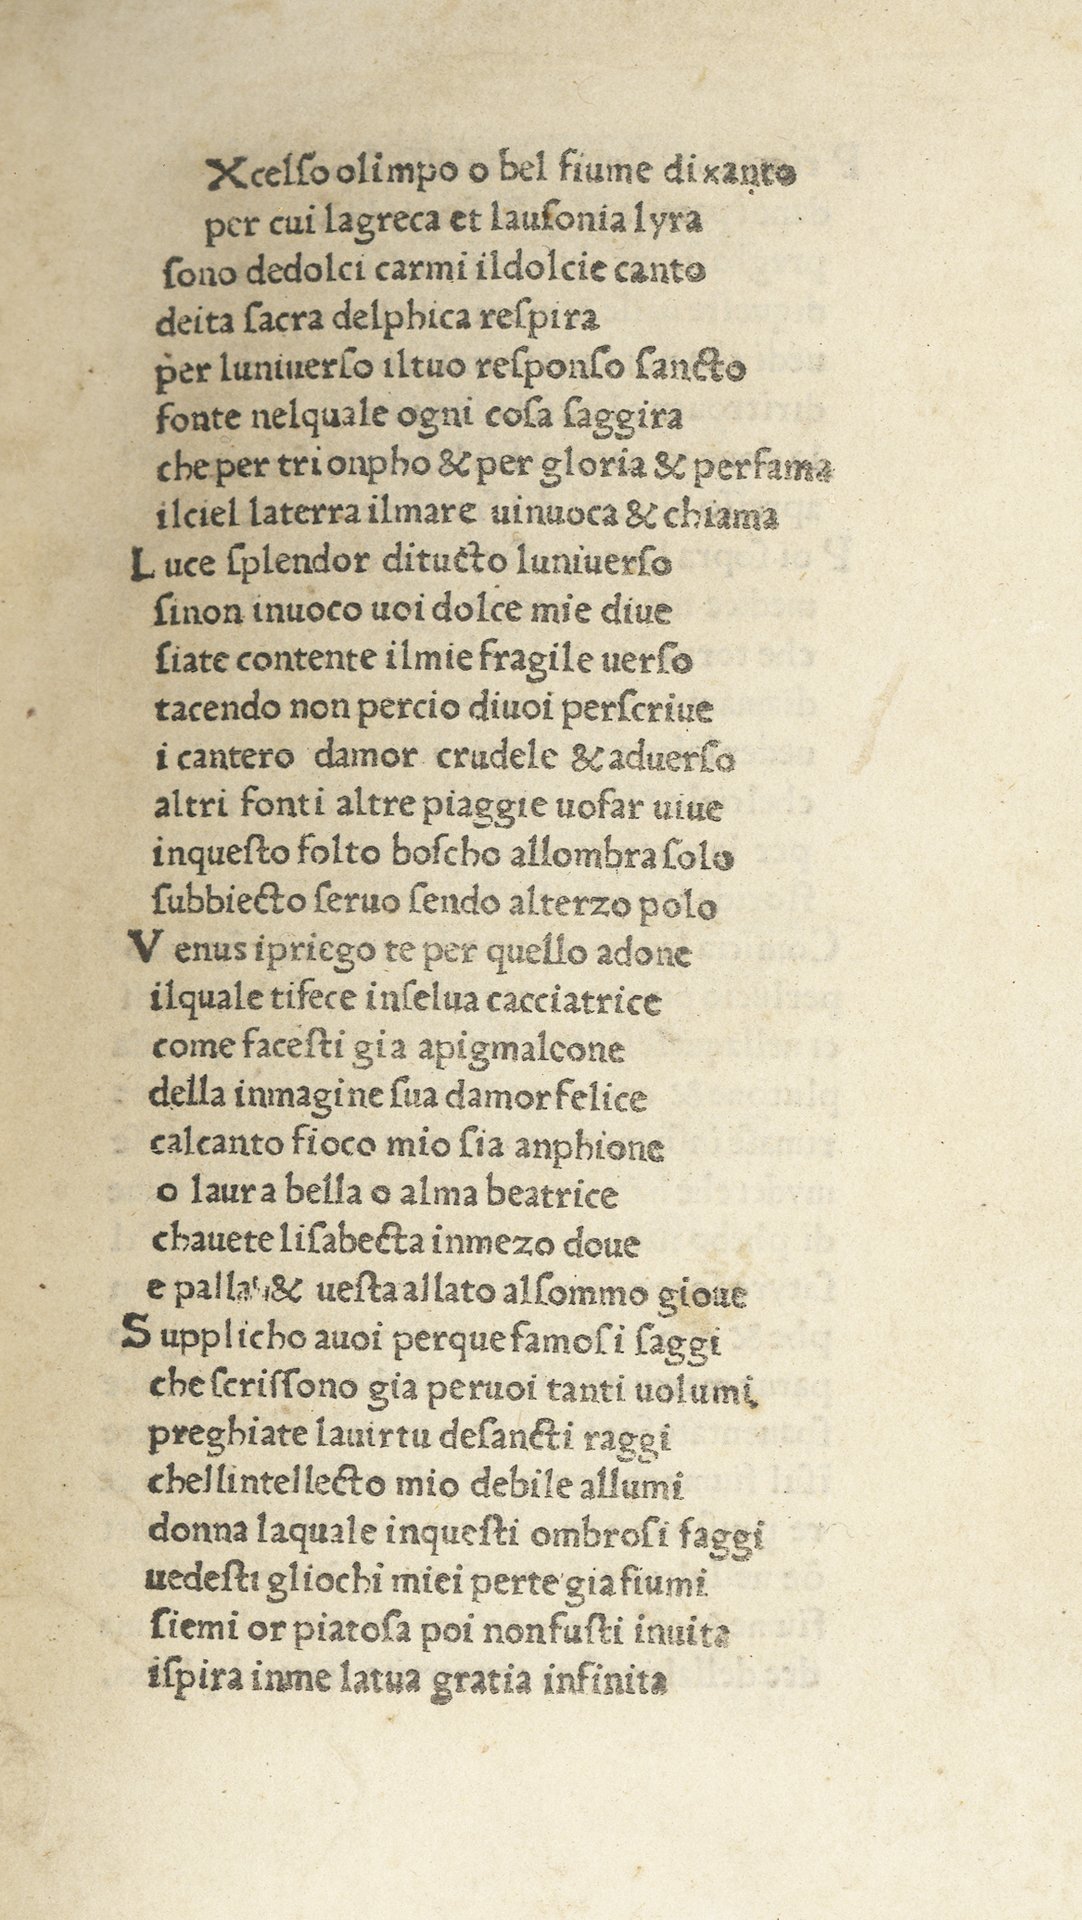 Xcelſo olimpo o bel fiume dixanto
per cui lagreca et lauſonia lyra
ſono dedolci carmi ildolcie canto
deita ſacra delphica reſpira
per luniuerſo iltuo reſponſo ſancto
fonte nelquale ogni coſa ſaggira
che per trionpho & per gloria & perfama
ilciel laterra ilmare uinuoca & chiama
Luce ſplendor ditucto luniuerſo
ſinon inuoco uoi dolce mie diue
ſiate contente ilmie fragile uerſo
tacendo non percio diuoi perſcriue
i cantero damor crudele & aduerſo
altri fonti altre piaggie uofar uiue
inqueſto folto boſcho allombra ſolo
ſubbiecto ſeruo ſendo alterzo polo
Venus ipriego te per quello adone
ilquale tifece inſelua cacciatrice
come faceſti gia apigmaleone
della inmagine ſua damor felice
calcanto fioco mio ſia anphione
o laura bella o alma beatrice
chauete liſabecta inmezo doue
e & ueſta allato alſommo gioue
Supplicho auoi perque famoſi ſaggi
che ſcriſſono gia peruoi tanti uolumi
preghiate lauirtu deſancti raggi
chellintellecto mio debile allumi
donna laquale inqueſti ombroſi faggi
uedeſti gliochi miei perte gia fiumi
ſiemi or piatoſa poi nonfuſti inuita
iſpira inme latua gratia infinita